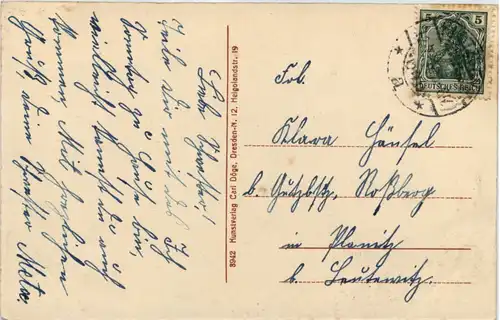 Liebe Schwester!
Teile dir mit daß Ich
Sonntag zu Hause bin,
vielleicht kannst du auch
kommen, Mit herzlichem
Gruß deine Schwester Meta.
8942 Kunstverlag Carl Döge, Dresden-N. 12, Helgolandstr. 19
5 5
DEUTSCHES REICH
Frl.
Klara Hänsel
b. Gutsbstz. Roßberg
in Planitz
b. Leutewitz.